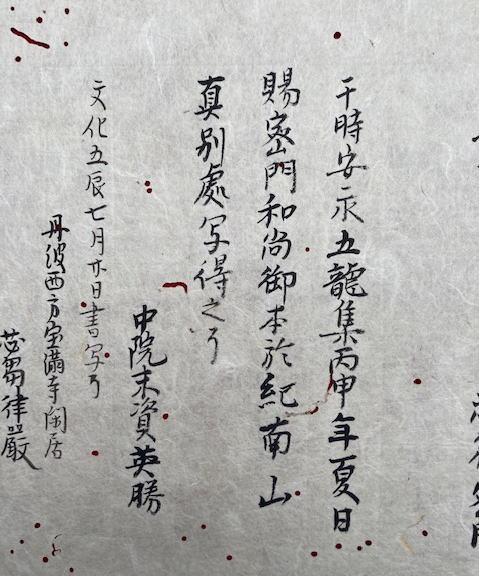 于時安永五龍集丙申年夏日
賜密門和尚御本於紀南山
真別處写得之了
中院末資英勝
文化五辰七月廿日書写了
丹波西方宝満寺閑居
苾蒭律嚴